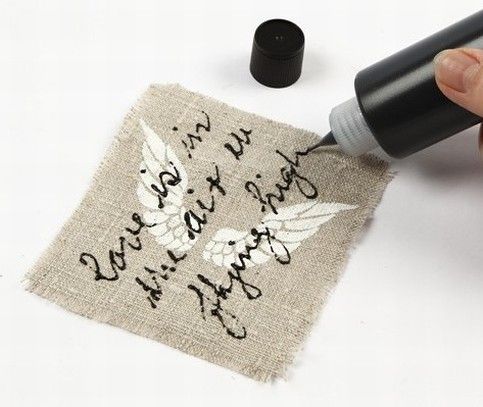 Love is in
the air
flying high